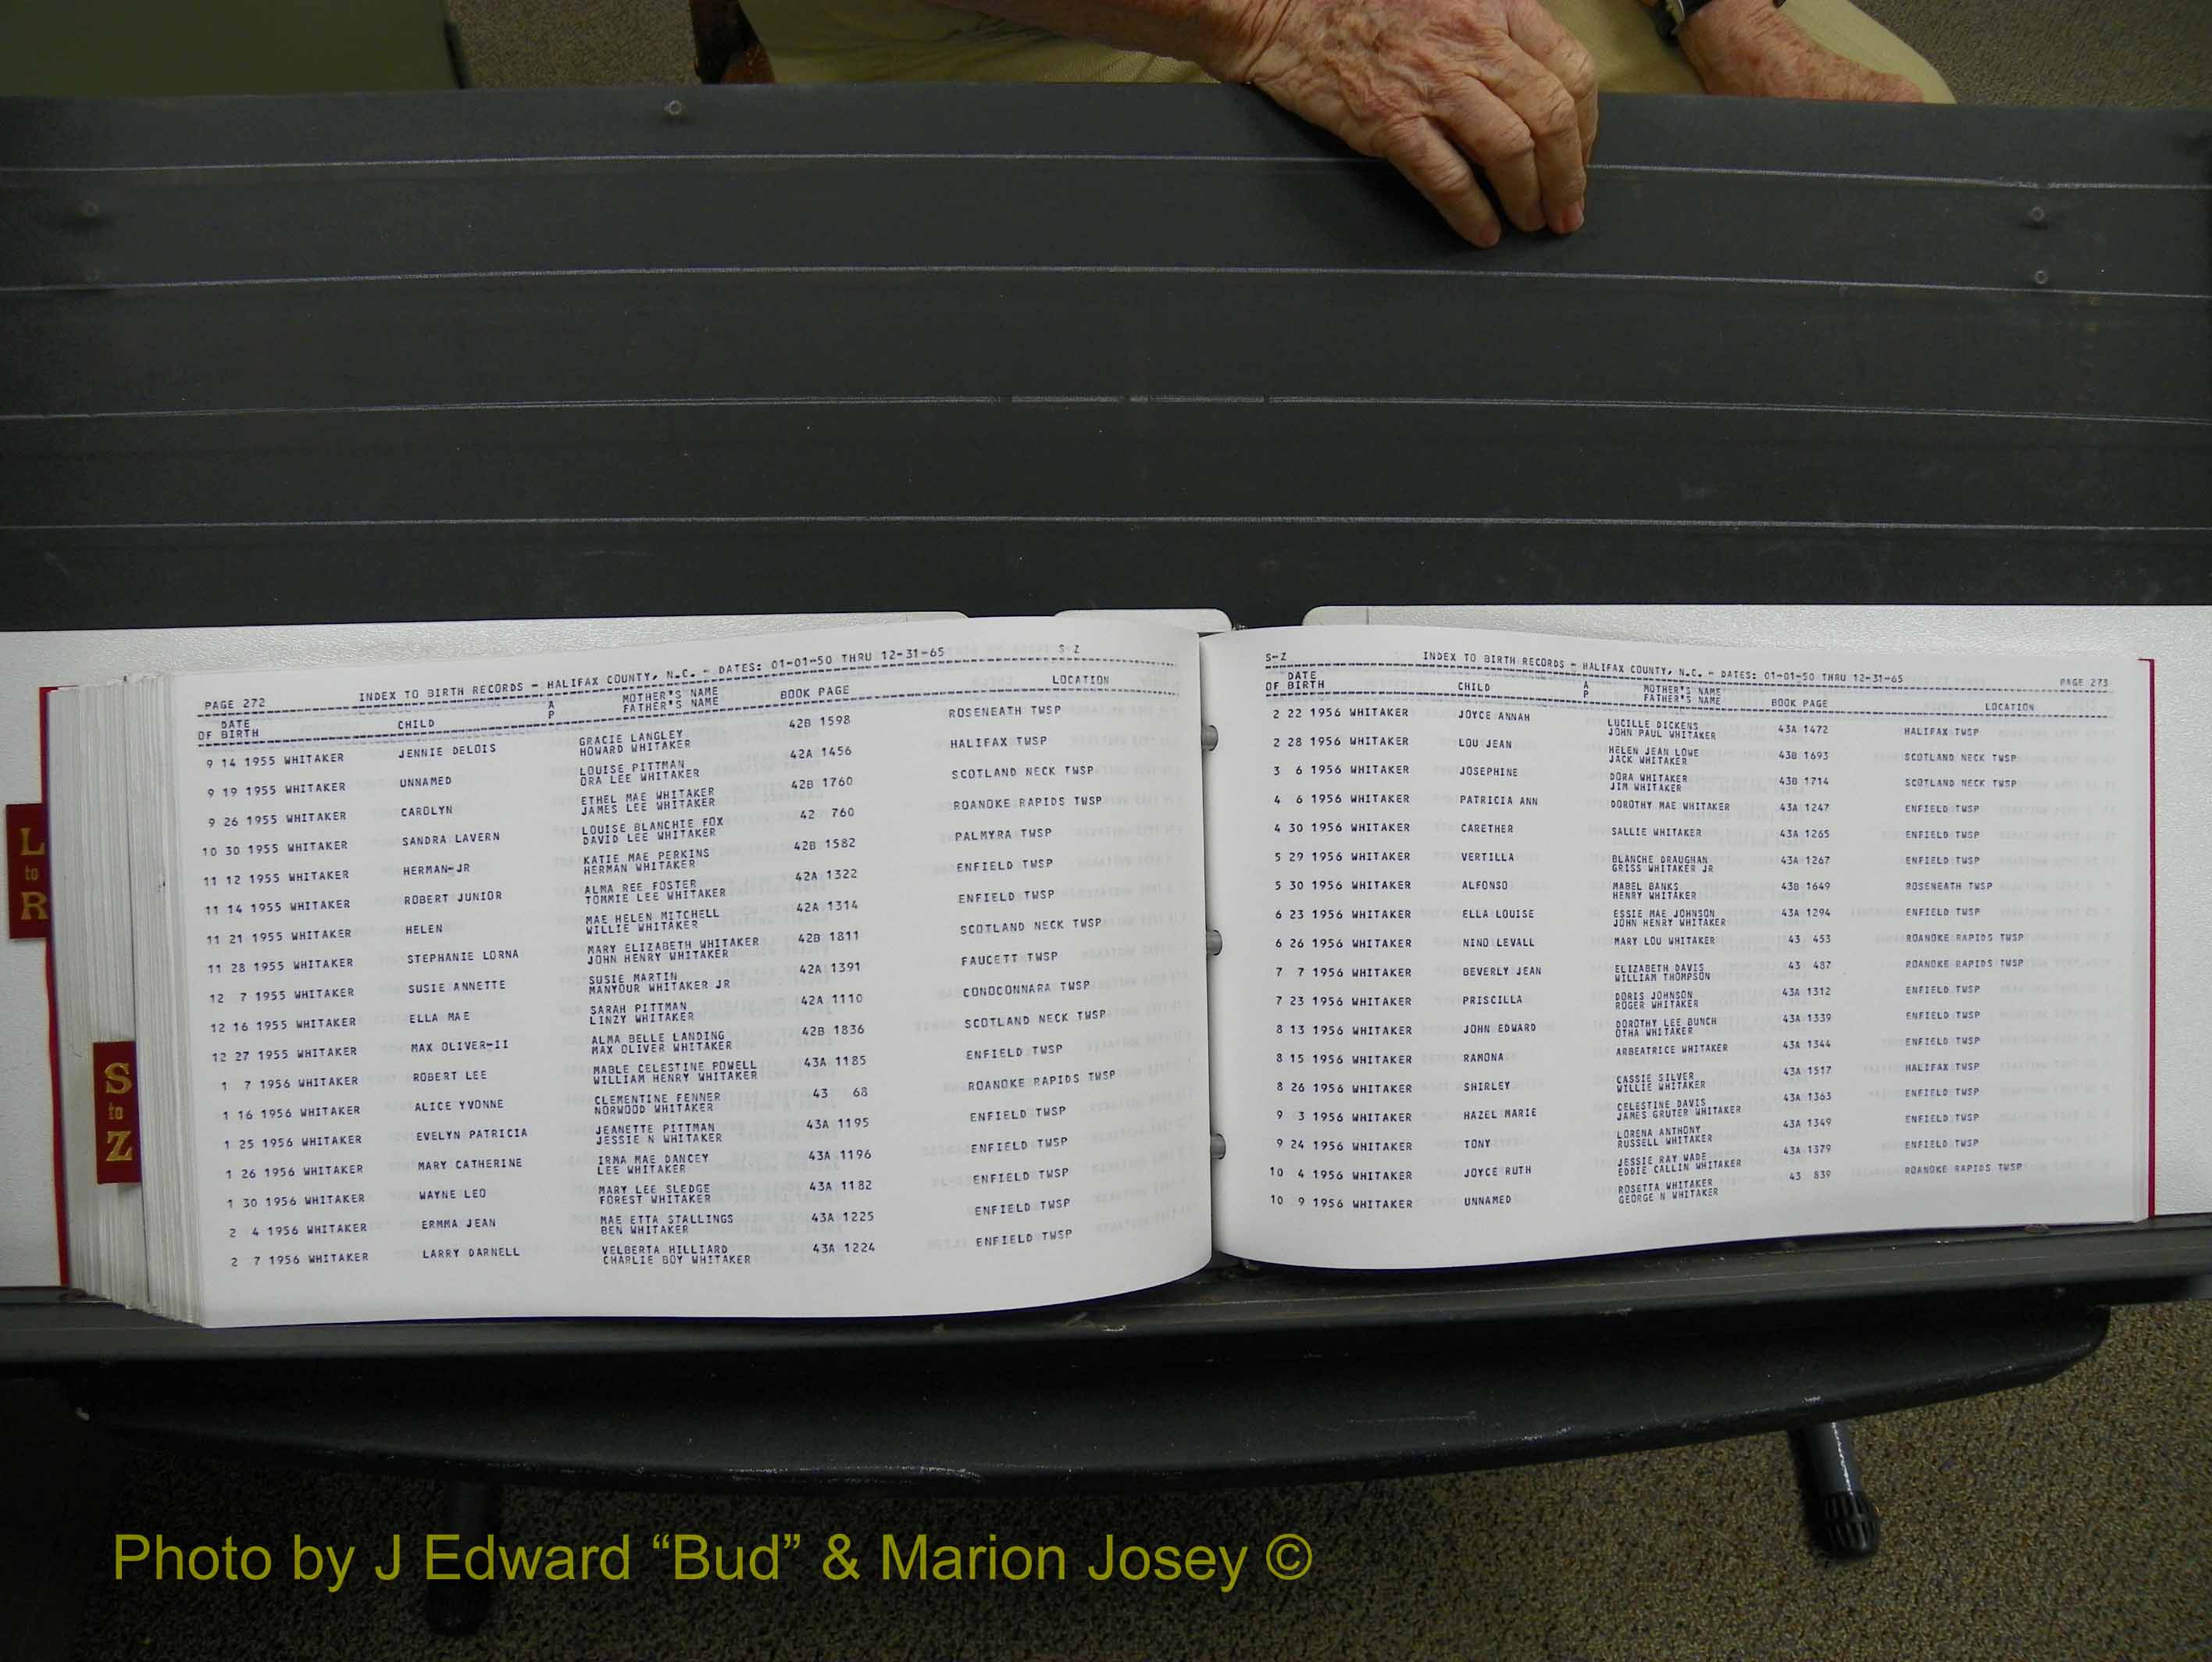 L
to
R
S
to
Z
PAGE 272 INDEX TO BIRTH RECORDS - HALIFAX COUNTY, N.C. - DATES: 01-01-50 THRU 12-31-65 S-Z
DATE OF BIRTH CHILD A P MOTHER'S NAME FATHER'S NAME BOOK PAGE LOCATION
9 14 1955 WHITAKER JENNIE DELOIS GRACIE LANGLEY HOWARD WHITAKER 42B 1598 ROSENEATH TWSP
9 19 1955 WHITAKER UNNAMED LOUISE PITTMAN ORA LEE WHITAKER 42A 1456 HALIFAX TWSP
9 26 1955 WHITAKER CAROLYN ETHEL MAE WHITAKER JAMES LEE WHITAKER 42B 1760 SCOTLAND NECK TWSP
10 30 1955 WHITAKER SANDRA LAVERN LOUISE BLANCHIE FOX DAVID LEE WHITAKER 42 760 ROANOKE RAPIDS TWSP
11 12 1955 WHITAKER HERMAN-JR KATIE MAE PERKINS HERMAN WHITAKER 42B 1582 PALMYRA TWSP
11 14 1955 WHITAKER ROBERT JUNIOR ALMA REE FOSTER TOMMIE LEE WHITAKER 42A 1322 ENFIELD TWSP
11 21 1955 WHITAKER HELEN MAE HELEN MITCHELL WILLIE WHITAKER 42A 1314 ENFIELD TWSP
11 28 1955 WHITAKER STEPHANIE LORNA MARY ELIZABETH WHITAKER JOHN HENRY WHITAKER 42B 1811 SCOTLAND NECK TWSP
12 7 1955 WHITAKER SUSIE ANNETTE SUSIE MARTIN MANYOUR WHITAKER JR 42A 1391 FAUCETT TWSP
12 16 1955 WHITAKER ELLA MAE SARAH PITTMAN LINZY WHITAKER 42A 1110 CONOCONNARA TWSP
12 27 1955 WHITAKER MAX OLIVER-II ALMA BELLE LANDING MAX OLIVER WHITAKER 42B 1836 SCOTLAND NECK TWSP
1 7 1956 WHITAKER ROBERT LEE MABLE CELESTINE POWELL WILLIAM HENRY WHITAKER 43A 1185 ENFIELD TWSP
1 16 1956 WHITAKER ALICE YVONNE CLEMENTINE FENNER NORWOOD WHITAKER 43 68 ROANOKE RAPIDS TWSP
1 25 1956 WHITAKER EVELYN PATRICIA JEANETTE PITTMAN JESSIE N WHITAKER 43A 1195 ENFIELD TWSP
1 26 1956 WHITAKER MARY CATHERINE IRMA MAE DANCEY LEE WHITAKER 43A 1196 ENFIELD TWSP
1 30 1956 WHITAKER WAYNE LEO MARY LEE SLEDGE FOREST WHITAKER 43A 1182 ENFIELD TWSP
2 4 1956 WHITAKER ERMMA JEAN MAE ETTA STALLINGS BEN WHITAKER 43A 1225 ENFIELD TWSP
2 7 1956 WHITAKER LARRY DARNELL VELBERTA HILLIARD CHARLIE BOY WHITAKER 43A 1224 ENFIELD TWSP
S-Z INDEX TO BIRTH RECORDS - HALIFAX COUNTY, N.C. - DATES: 01-01-50 THRU 12-31-65 PAGE 273
DATE OF BIRTH CHILD A P MOTHER'S NAME FATHER'S NAME BOOK PAGE LOCATION
2 22 1956 WHITAKER JOYCE ANNAH LUCILLE DICKENS JOHN PAUL WHITAKER 43A 1472 HALIFAX TWSP
2 28 1956 WHITAKER LOU JEAN HELEN JEAN LOWE JACK WHITAKER 43B 1693 SCOTLAND NECK TWSP
3 6 1956 WHITAKER JOSEPHINE DORA WHITAKER JIM WHITAKER 43B 1714 SCOTLAND NECK TWSP
4 6 1956 WHITAKER PATRICIA ANN DOROTHY MAE WHITAKER 43A 1247 ENFIELD TWSP
4 30 1956 WHITAKER CARETHER SALLIE WHITAKER 43A 1265 ENFIELD TWSP
5 29 1956 WHITAKER VERTILLA BLANCHE DRAUGHAN GRISS WHITAKER JR 43A 1267 ENFIELD TWSP
5 30 1956 WHITAKER ALFONSO MABEL BANKS HENRY WHITAKER 43B 1649 ROSENEATH TWSP
6 23 1956 WHITAKER ELLA LOUISE ESSIE MAE JOHNSON JOHN HENRY WHITAKER 43A 1294 ENFIELD TWSP
6 26 1956 WHITAKER NINO LEVALL MARY LOU WHITAKER 43 453 ROANOKE RAPIDS TWSP
7 7 1956 WHITAKER BEVERLY JEAN ELIZABETH DAVIS WILLIAM THOMPSON 43 487 ROANOKE RAPIDS TWSP
7 23 1956 WHITAKER PRISCILLA DORIS JOHNSON ROGER WHITAKER 43A 1312 ENFIELD TWSP
8 13 1956 WHITAKER JOHN EDWARD DOROTHY LEE BUNCH OTHA WHITAKER 43A 1339 ENFIELD TWSP
8 15 1956 WHITAKER RAMONA ARBEATRICE WHITAKER 43A 1344 ENFIELD TWSP
8 26 1956 WHITAKER SHIRLEY CASSIE SILVER WILLIE WHITAKER 43A 1517 HALIFAX TWSP
9 3 1956 WHITAKER HAZEL MARIE CELESTINE DAVIS JAMES GRUTER WHITAKER 43A 1363 ENFIELD TWSP
9 24 1956 WHITAKER TONY LORENA ANTHONY RUSSELL WHITAKER 43A 1349 ENFIELD TWSP
10 4 1956 WHITAKER JOYCE RUTH JESSIE RAY WADE EDDIE CALLIN WHITAKER 43A 1379 ENFIELD TWSP
10 9 1956 WHITAKER UNNAMED ROSETTA WHITAKER GEORGE N WHITAKER 43 839 ROANOKE RAPIDS TWSP
Photo by J Edward “Bud” & Marion Josey ©